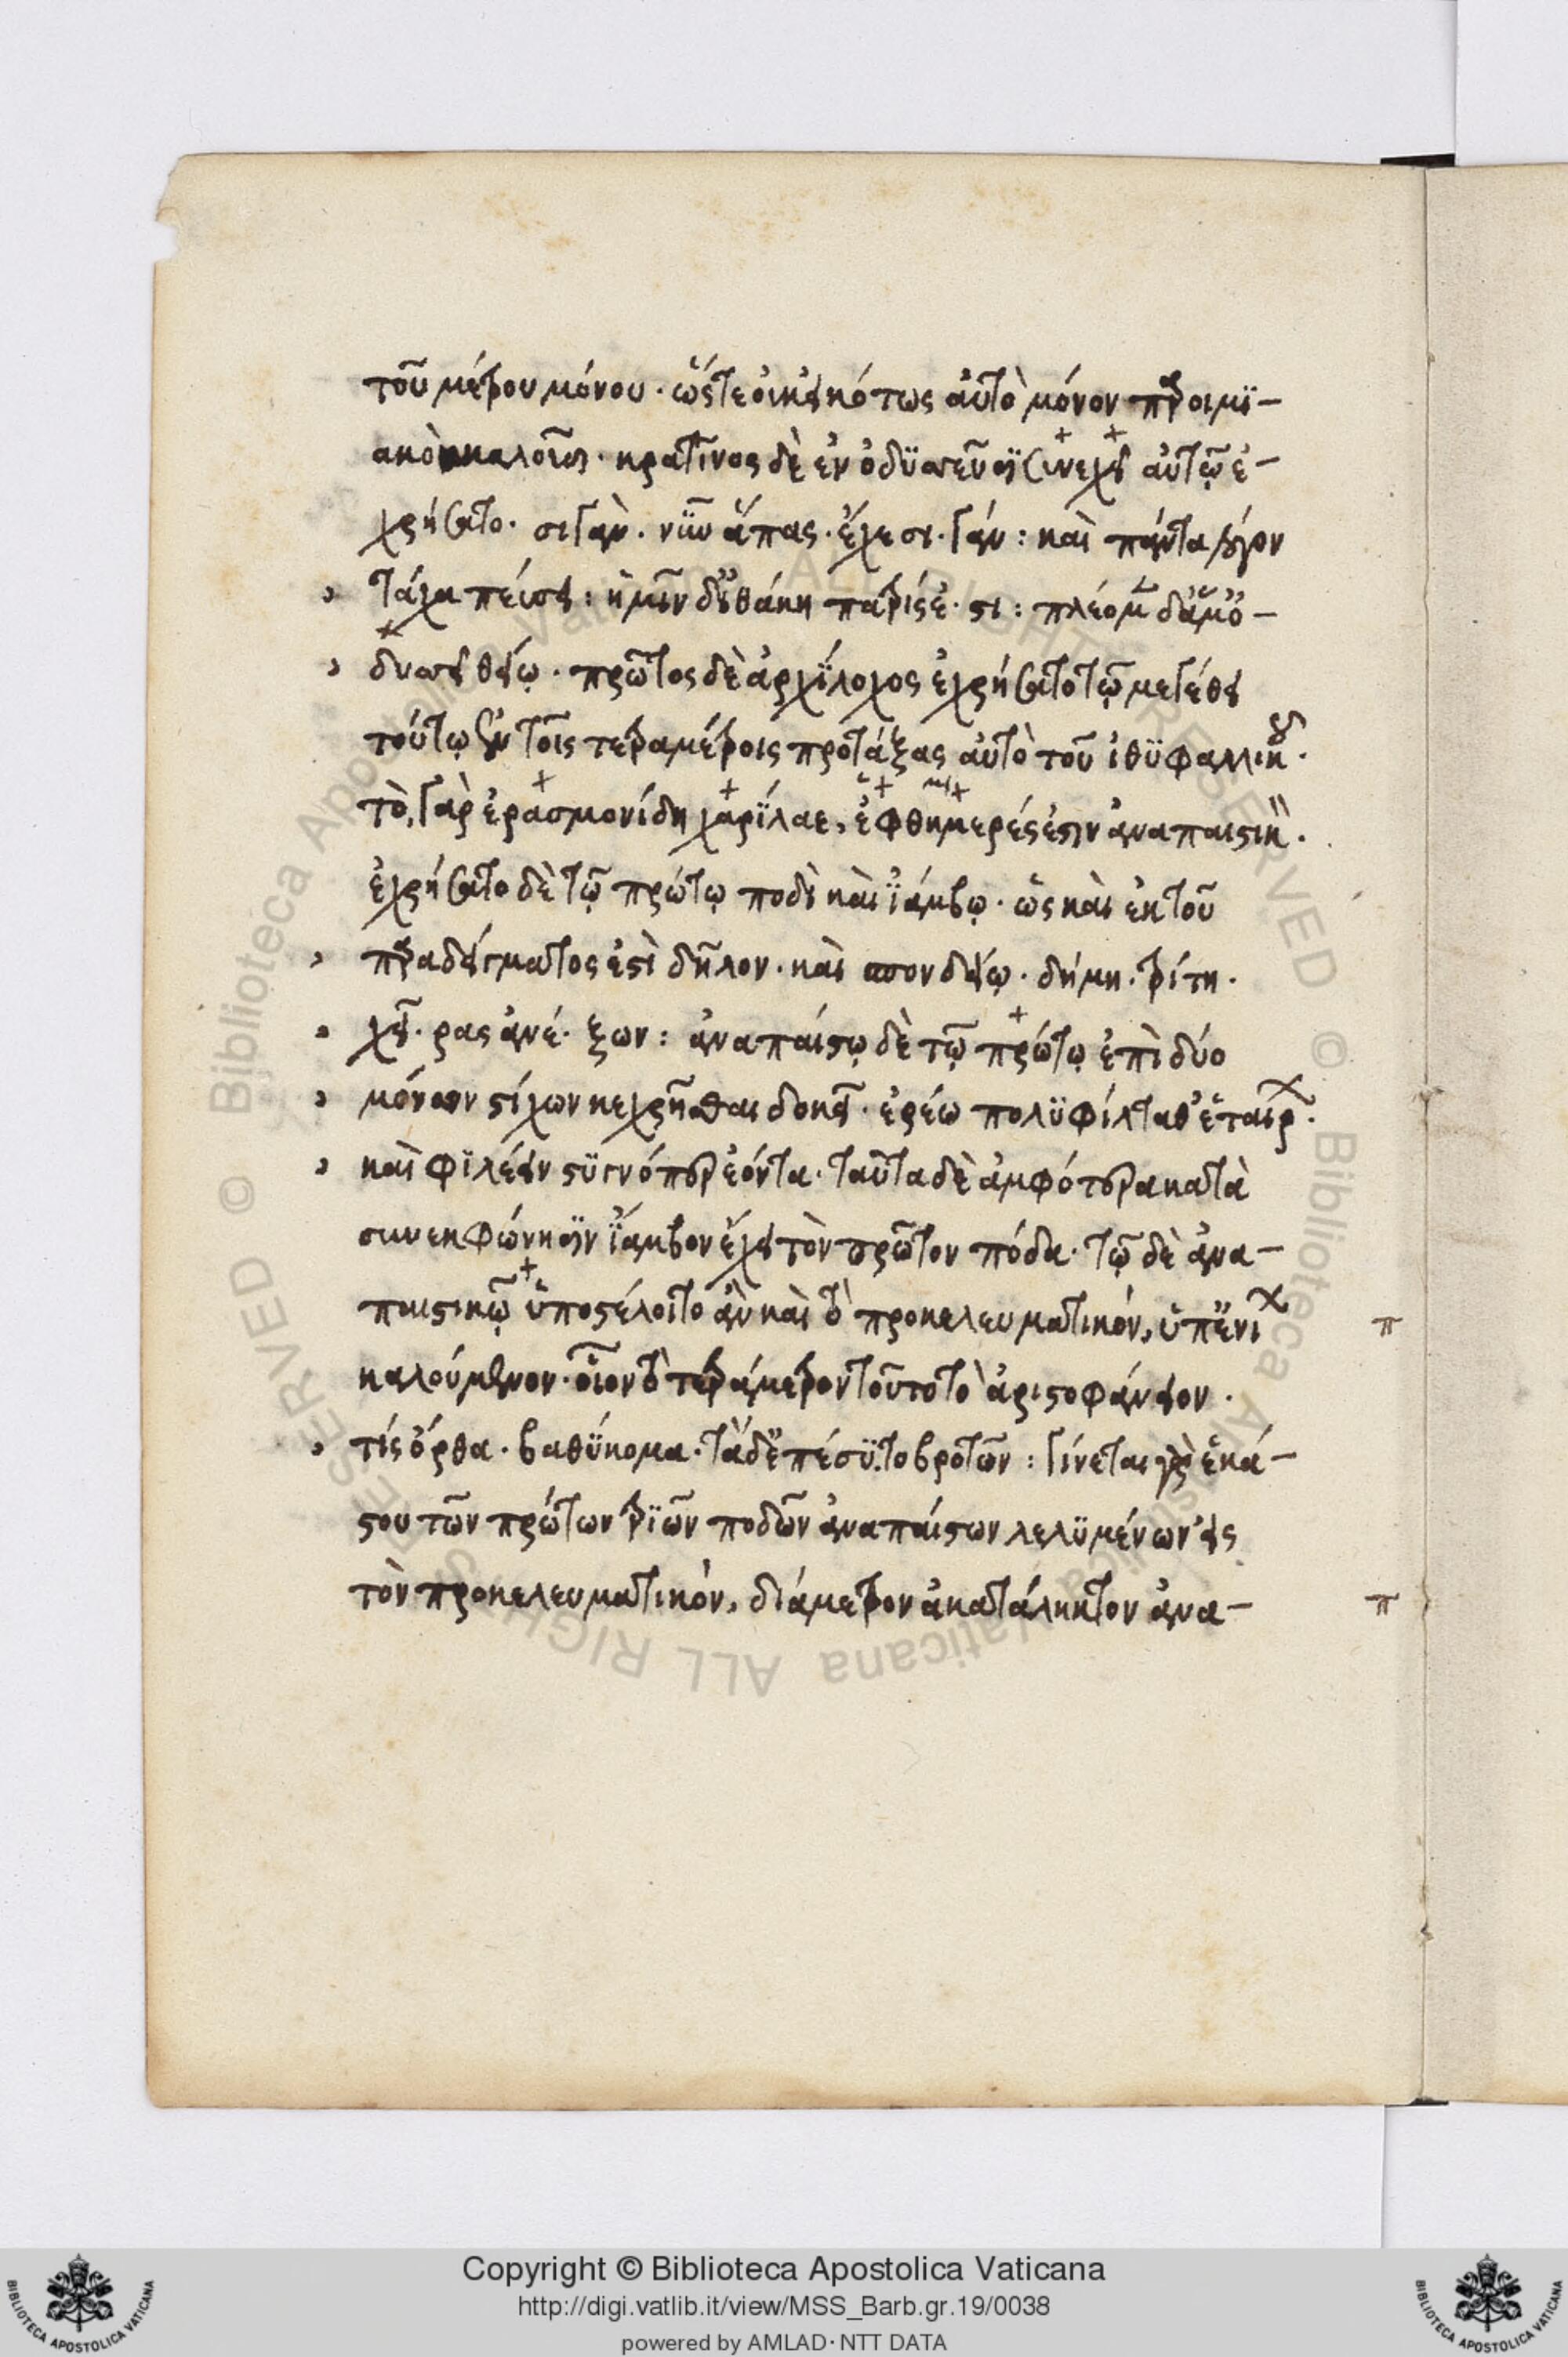 τοῦ μέτρου μόνου · ὥστε οἰκειότως αὐτὸ μόνον παροιμϊ-
ακὸν καλοῖτο · κρατῖνος δὲ ἐν ὀδϋσσεῦσϊ συνεχεῖ αὐτῷ ἐ-
χρήσατο · σιγὰν · νῦν ἅπας · ἔχε σι · γάν : καὶ πάντα λόγον
τάχα πείσει : ἡμῖν δ' ϊθάκη πατρίς ἐ · στι : πλέομεν δ' ἅμ' ὀ-
δυσσεῖ θείῳ · πρῶτος δὲ ἀρχΐλοχος ἐχρήσατο τῷ μεγέθει
τούτῳ ἐν τοῖς τετραμέτροις προτάξας αὐτὸ τοῦ ἰθϋφαλλικοῦ ·
τὸ, γὰρ ἐρασμονίδη χαρΐλαε, ἑφθημερές ἐστιν ἀναπαιστικὸν ·
ἐχρήσατο δὲ τῷ πρώτῳ ποδὶ καὶ ἰάμβῳ · ὡς καὶ ἐκ τοῦ
παραδείγματος ἐστὶ δῆλον · καὶ σπονδείῳ · δήμη · τρίτη ·
χεῖ · ρας ἀνέ · ξων : ἀναπαίστῳ δὲ τῷ πρώτῳ ἐπὶ δύο
μόνον στίχων κεχρῆσθαι δοκεῖ · ἐρέω πολϋφίλταθ' ἑταίρων ·
καὶ φϊλέειν στϋγνόπερ ἐόντα · ταῦτα δὲ ἀμφότερα κατὰ
συνεκφώνησϊν ἴαμβον ἔχει τὸν πρῶτον πόδα · τῷ δὲ ἀνα-
παιστικῷ ὑποστέλοιτο ἂν καὶ τὸ προκελευματικόν, ὑπ' ἐνίων
καλούμενον · οἷον τὸ τετράμετρον τοῦτο τὸ ἀριστοφάνειον ·
τίς ὄρθα · βαθΰκομα · τάδ' ἐπέσϋ · το βροτῶν : γίνεται γὰρ ἑκά-
στου τῶν πρώτων τρϊῶν ποδῶν ἀναπαίστων λελϋμένων εἰς
τὸν προκελευματικόν, διάμετρον ἀκατάληκτον ἀνα-
π
π
Copyright © Biblioteca Apostolica Vaticana
http://digi.vatlib.it/view/MSS_Barb.gr.19/0038
powered by AMLAD·NTT DATA